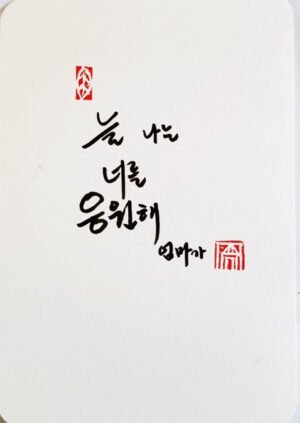 늘 나는
너를
응원해
엄마가